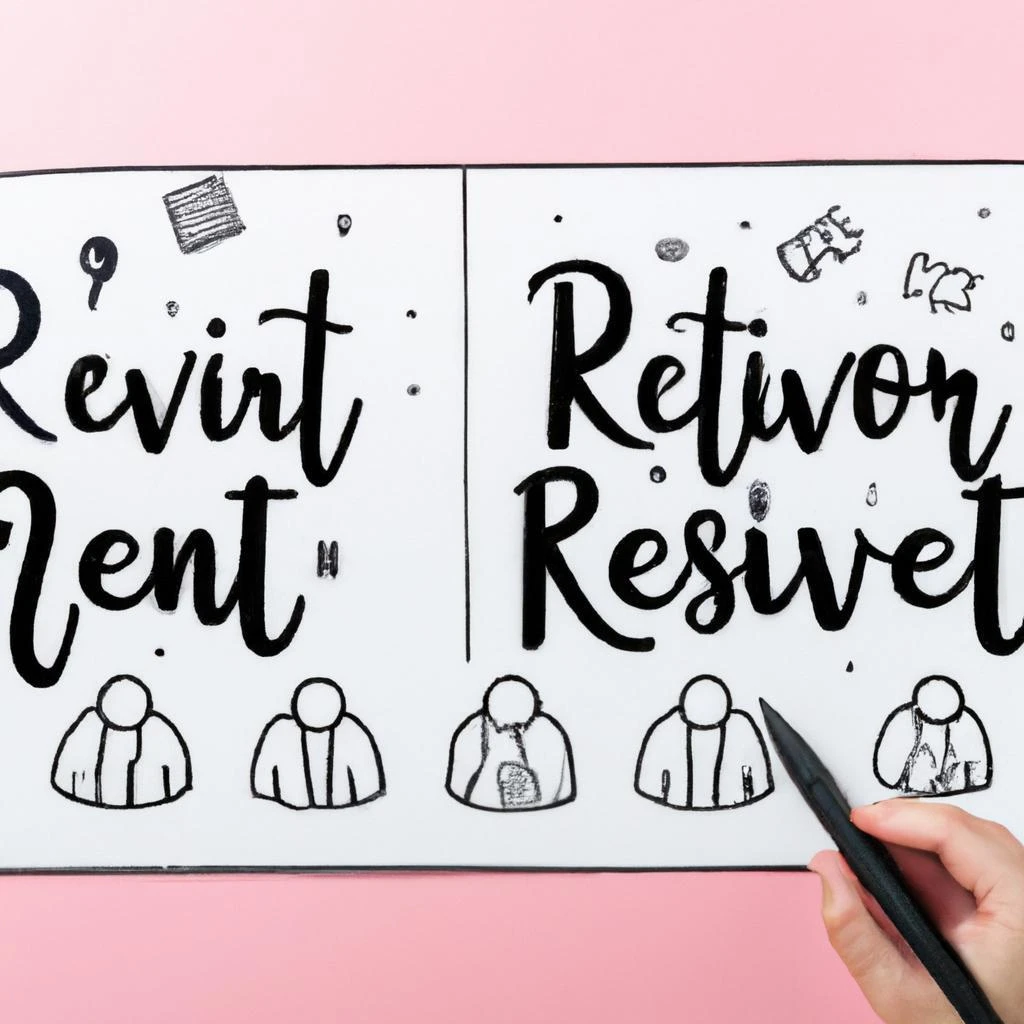 Revint
Rent
Retivon
Resivet